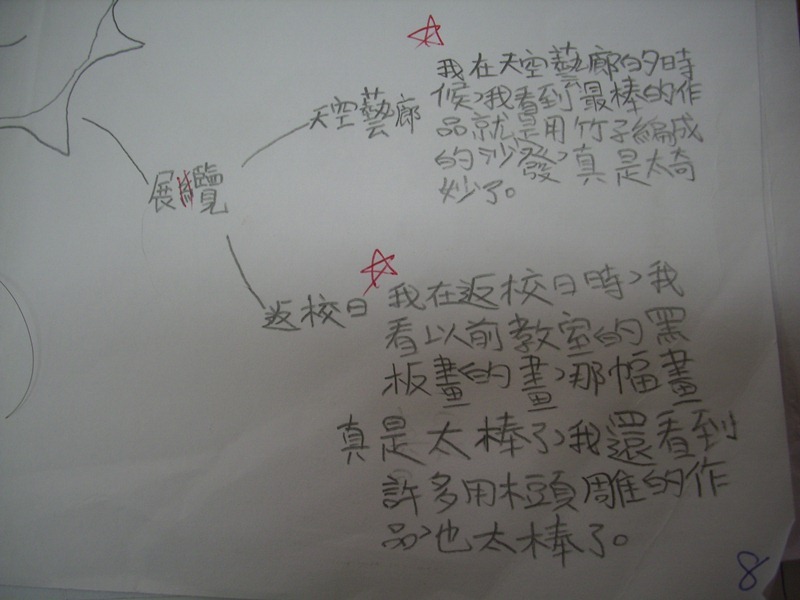 展覽
天空藝廊
我在天空藝廊的時
候，我看到最棒的作
品就是用竹子編成
的沙發，真是太奇
妙了。
返校日
我在返校日時，我
看以前教室的黑
板畫的畫，那幅畫
真是太棒了，我還看到
許多用木頭雕的作
品，也太棒了。
8